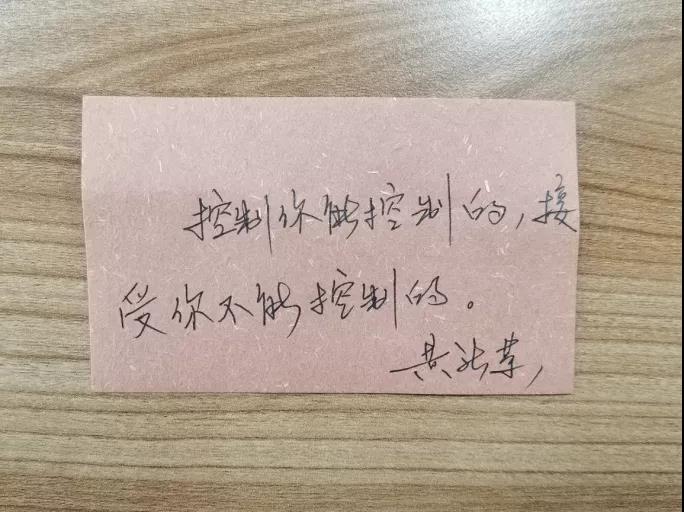 控制你能控制的，接
受你不能控制的。